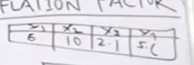 FLATION FACTOR
x₁ x₂ x₃ x₄
6 10 2.1 5